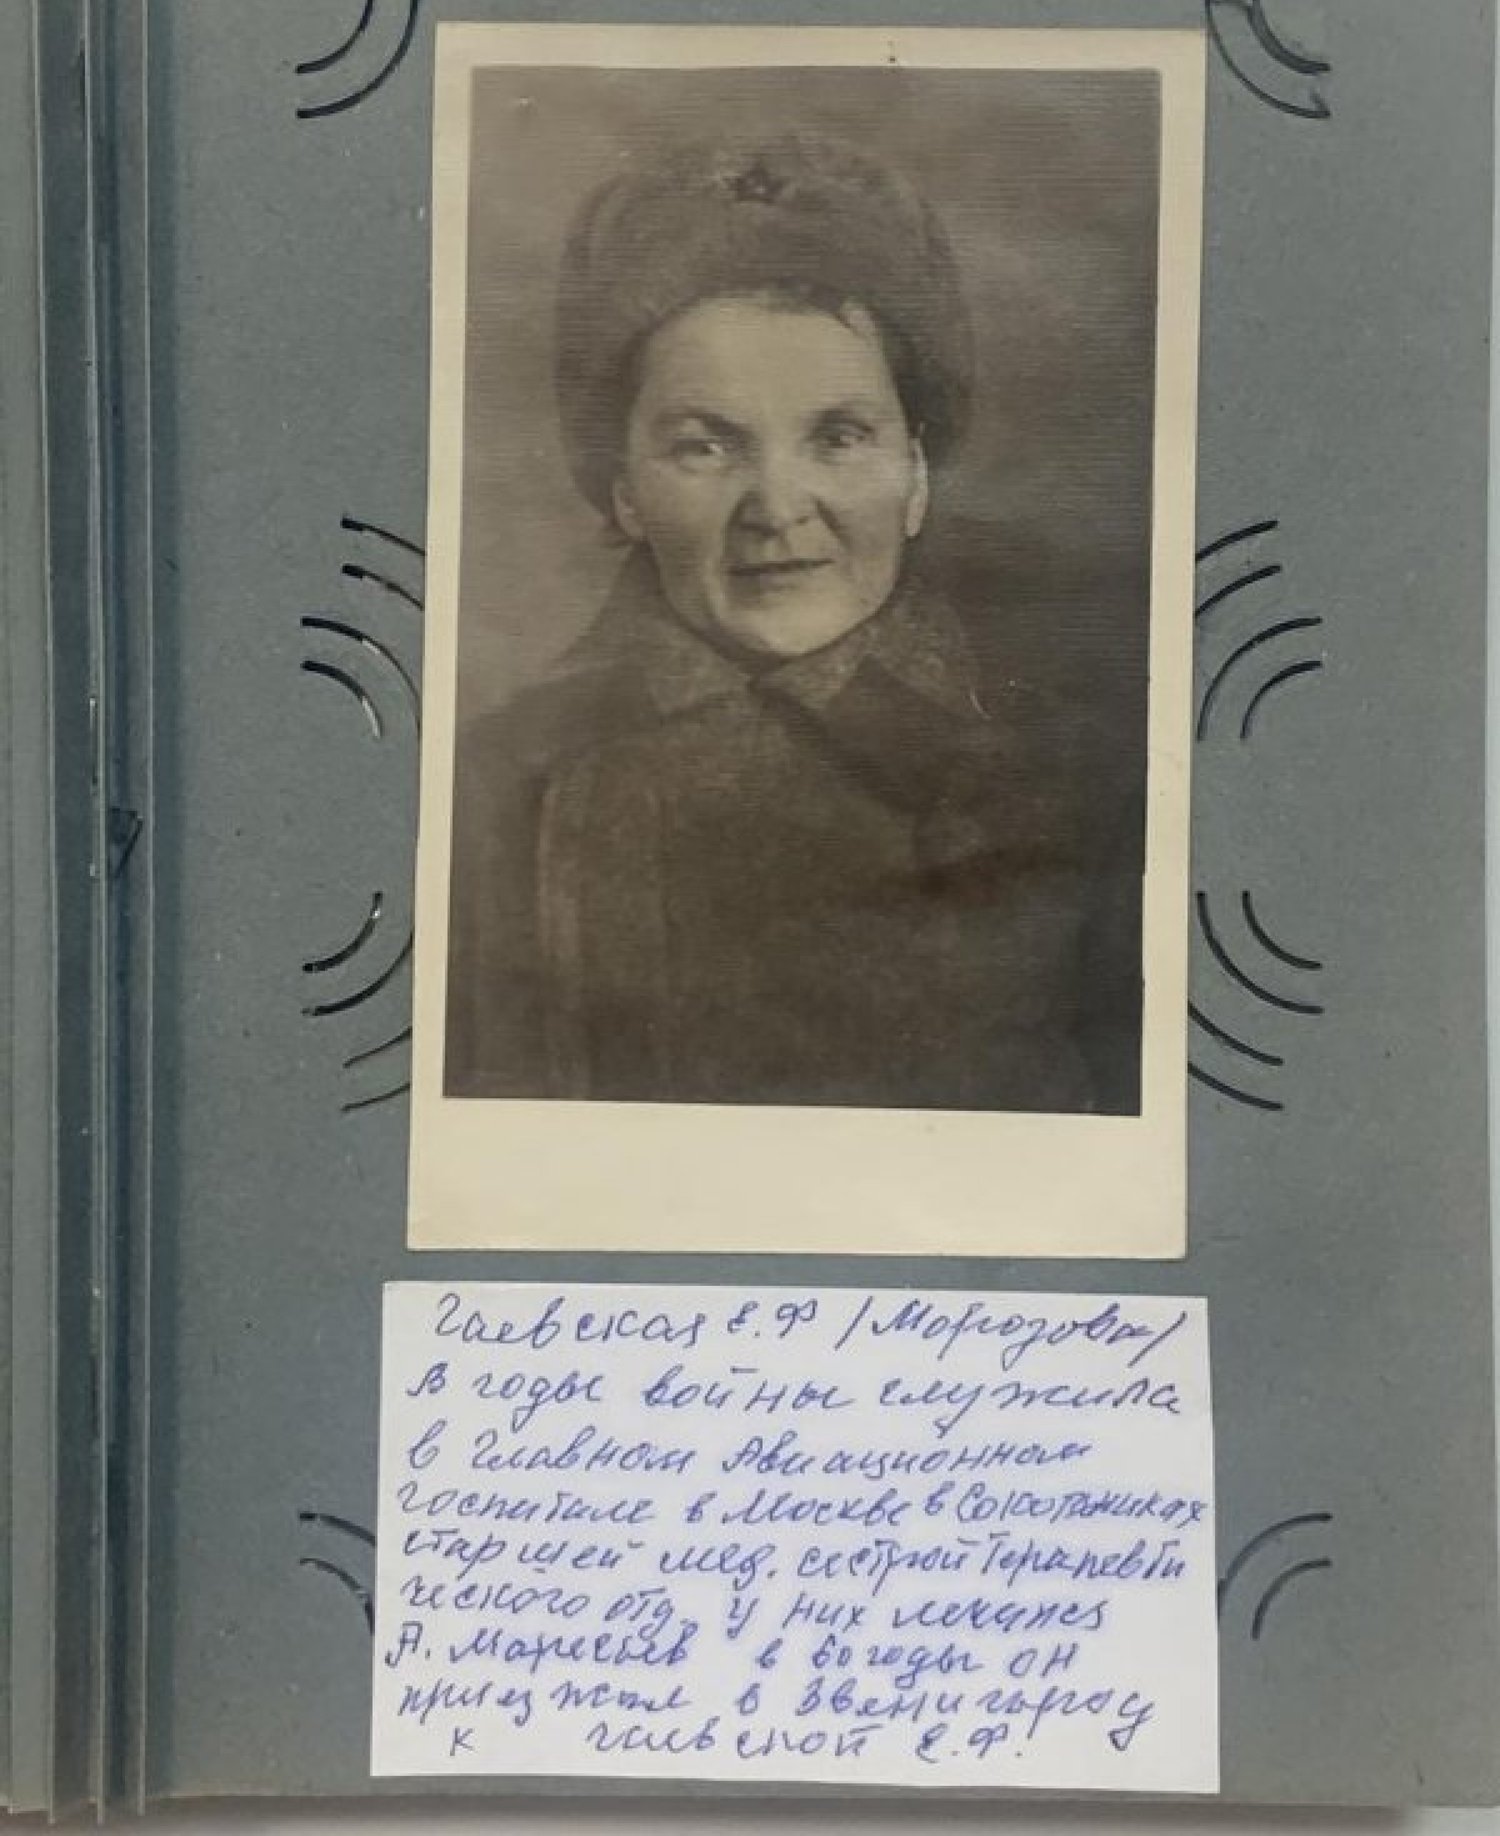 Гаевская Е.Ф /Морозова/
в годы войны служила
в Главном Авиационном
госпитале в Москве в Сокольниках
старшей мед. сестрой Терапевти
ческого отд. у них лечился
А. Маресьев в 60 годы он
приезжал в Звенигород
к Гаевской Е.Ф.